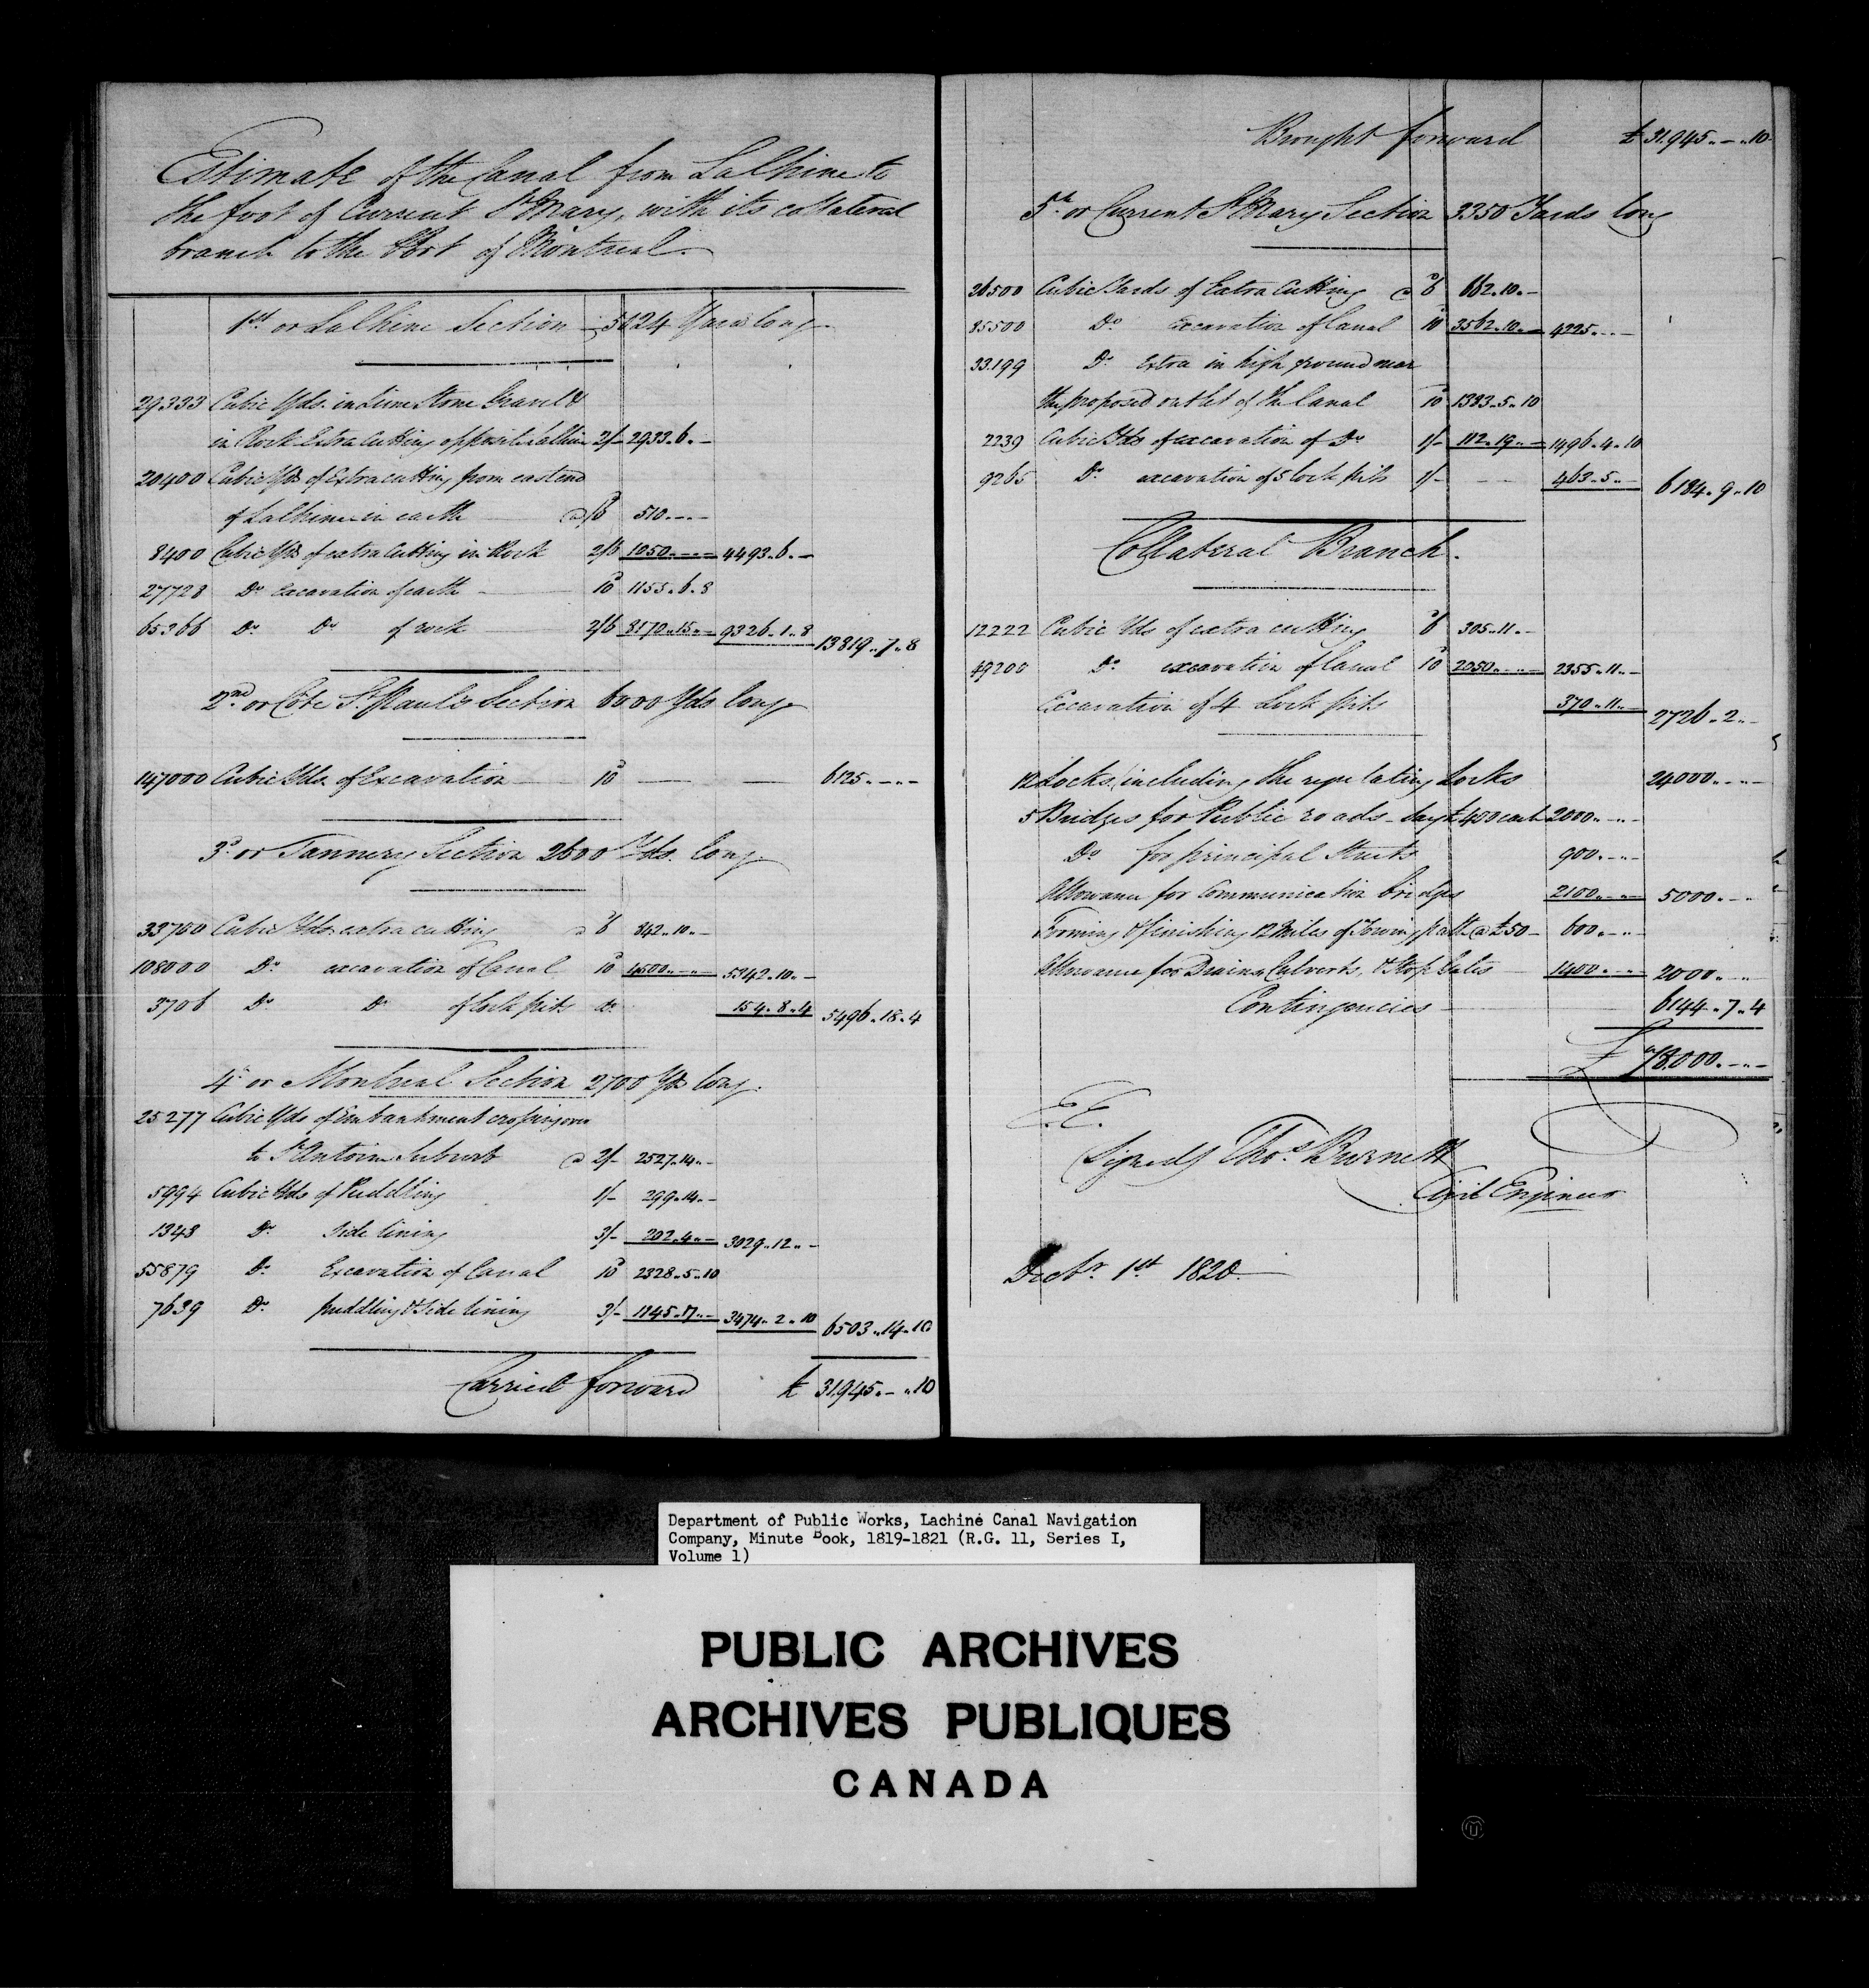 Estimate of the Canal from Lalhine to
the foot of Current St. Mary, with its collateral
branch to the Port of Montreal.
1st or Lalhine Section 5124 Yards long.
29333 Cubic Yds. in Lime Stone Gravel &
in Rock Extra Cutting opposite Lalhine 2/- 2933..6..-
20400 Cubic Yds of Extra cutting from east end
of Lalhine in earth @ /6 510..-..-
8400 Cubic Yds of extra Cutting in Rock 2/6 1050..-..- 4493..6..-
27728 Do excavation of earth - 10d 1155..6..8
65366 Do. Do of rock 2/6 8170..15..- 9326..1..8 13819..7..8
2nd or Côte St. Paul's Section 6000 Yds long.
147000 Cubic Yds. of Excavation 10d - - 6125..-..-
3d or Tannery Section 2600 Yds. long.
33700 Cubic Yds. extra cutting @ 6d 842..10..-
108000 Do excavation of Canal 10d 4500..-..- 5342..10..-
3706 Do. Do of Lock pits do. 154..8..4 5496..18..4
4th or Montreal Section 2700 Yds long.
25277 Cubic Yds of Embankment crossing over
to St Antoine Suburb @ 2/- 2527..14..-
5994 Cubic Yds of Puddling 1/- 299..14..-
1348 Do. Side lining 3/- 202..4..- 3029..12..-
55879 Do. Excavation of Canal 10d 2328..5..10
7639 Do. puddling & Side lining 3/- 1145..17..- 3474..2..10 6503..14..10
Carried forward £ 31,945..-..10
Brought forward £ 31,945..-..10
5th or Current St Mary Section 3350 Yards long
26500 Cubic Yards of Extra Cutting @ 6d 662..10..-
85500 Do excavation of Canal 10d 3562..10..- 4225..-..-
33.199 Do Extra in high ground near
the proposed outlet of the Canal 10d 1383..5..10
2239 Cubic Yds of excavation of Do 1/- 112..19..- 1496..4..10
9265 Do excavation of 5 lock pits 1/- - - 463..5..- 6184..9..10
Collateral Branch.
12222 Cubic Yds of extra cutting 6d 305..11..-
49200 Do excavation of Canal 10d 2050..-..- 2355..11..-
Excavation of 4 Lock pits 370..11..- 2726..2..-
12 Locks, including the regulating Locks 24000..-..-
5 Bridges for Public roads - say £400 each 2000..-..-
Do for principal Streets 900..-..-
Allowance for communication bridges 2100..-..- 5000..-..-
Forming & finishing 12 Miles of Towing path @ £50 - 600..-..-
Allowance for Drains Culverts, & Stop Gates 1400..-..- 2000..-..-
Contingencies 6144..7..4
£ 78.000..-..-
E.E.
Signed) Thos. Burnett
Civil Engineer
Decbr. 1st 1820.
Department of Public Works, Lachiné Canal Navigation
Company, Minute Book, 1819-1821 (R.G. 11, Series I,
Volume 1)
PUBLIC ARCHIVES
ARCHIVES PUBLIQUES
CANADA